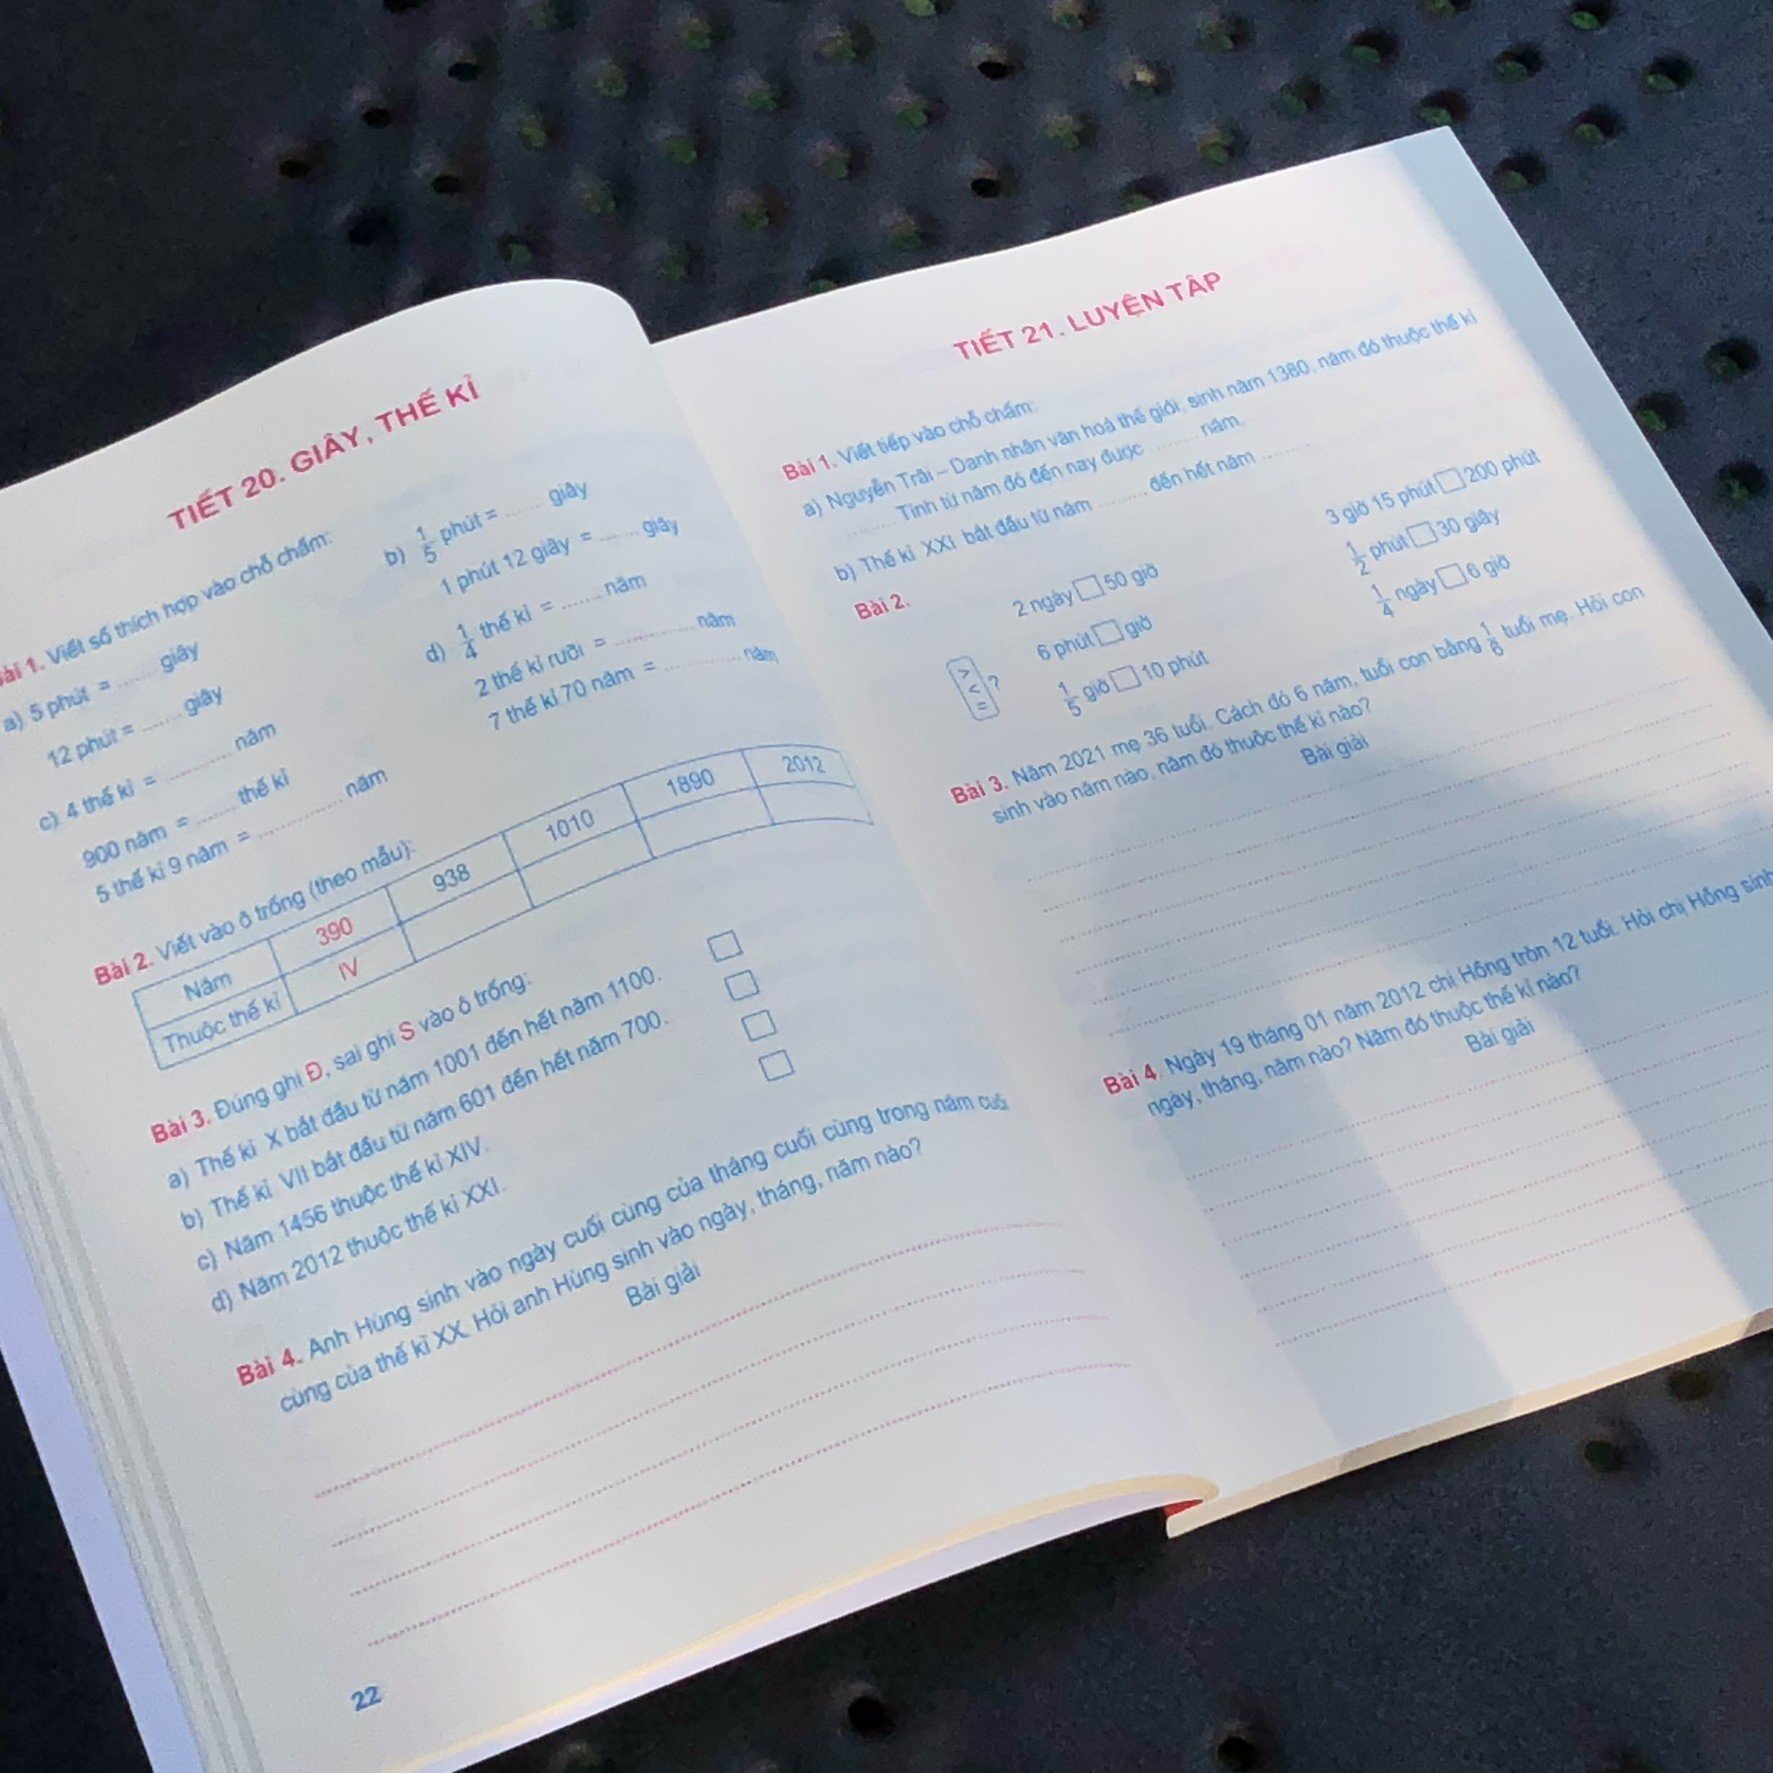 TIẾT 20. GIÂY, THẾ KỈ
Bài 1. Viết số thích hợp vào chỗ chấm:
a) 5 phút = ...... giây
12 phút = ...... giây
b) 1/5 phút = ...... giây
1 phút 12 giây = ...... giây
c) 4 thế kỉ = .......... năm
900 năm = ...... thế kỉ
5 thế kỉ 9 năm = ............ năm
d) 1/4 thế kỉ = ...... năm
2 thế kỉ rưỡi = ............ năm
7 thế kỉ 70 năm = ............ năm
Bài 2. Viết vào ô trống (theo mẫu):
Năm 390 938 1010 1890 2012
Thuộc thế kỉ IV
Bài 3. Đúng ghi Đ, sai ghi S vào ô trống:
a) Thế kỉ X bắt đầu từ năm 1001 đến hết năm 1100. □
b) Thế kỉ VII bắt đầu từ năm 601 đến hết năm 700. □
c) Năm 1456 thuộc thế kỉ XIV. □
d) Năm 2012 thuộc thế kỉ XXI. □
Bài 4. Anh Hùng sinh vào ngày cuối cùng của tháng cuối cùng trong năm cuối
cùng của thế kỉ XX. Hỏi anh Hùng sinh vào ngày, tháng, năm nào?
Bài giải
22
TIẾT 21. LUYỆN TẬP
Bài 1. Viết tiếp vào chỗ chấm:
a) Nguyễn Trãi – Danh nhân văn hoá thế giới, sinh năm 1380, năm đó thuộc thế kỉ
........ Tính từ năm đó đến nay được ........ năm.
b) Thế kỉ XXI bắt đầu từ năm ........ đến hết năm ........
Bài 2.
> < = ?
2 ngày □ 50 giờ
3 giờ 15 phút □ 200 phút
6 phút □ giờ
1/2 phút □ 30 giây
1/5 giờ □ 10 phút
1/4 ngày □ 6 giờ
Bài 3. Năm 2021 mẹ 36 tuổi. Cách đó 6 năm, tuổi con bằng 1/6 tuổi mẹ. Hỏi con
sinh vào năm nào, năm đó thuộc thế kỉ nào?
Bài giải
Bài 4. Ngày 19 tháng 01 năm 2012 chị Hồng tròn 12 tuổi. Hỏi chị Hồng sinh
ngày, tháng, năm nào? Năm đó thuộc thế kỉ nào?
Bài giải